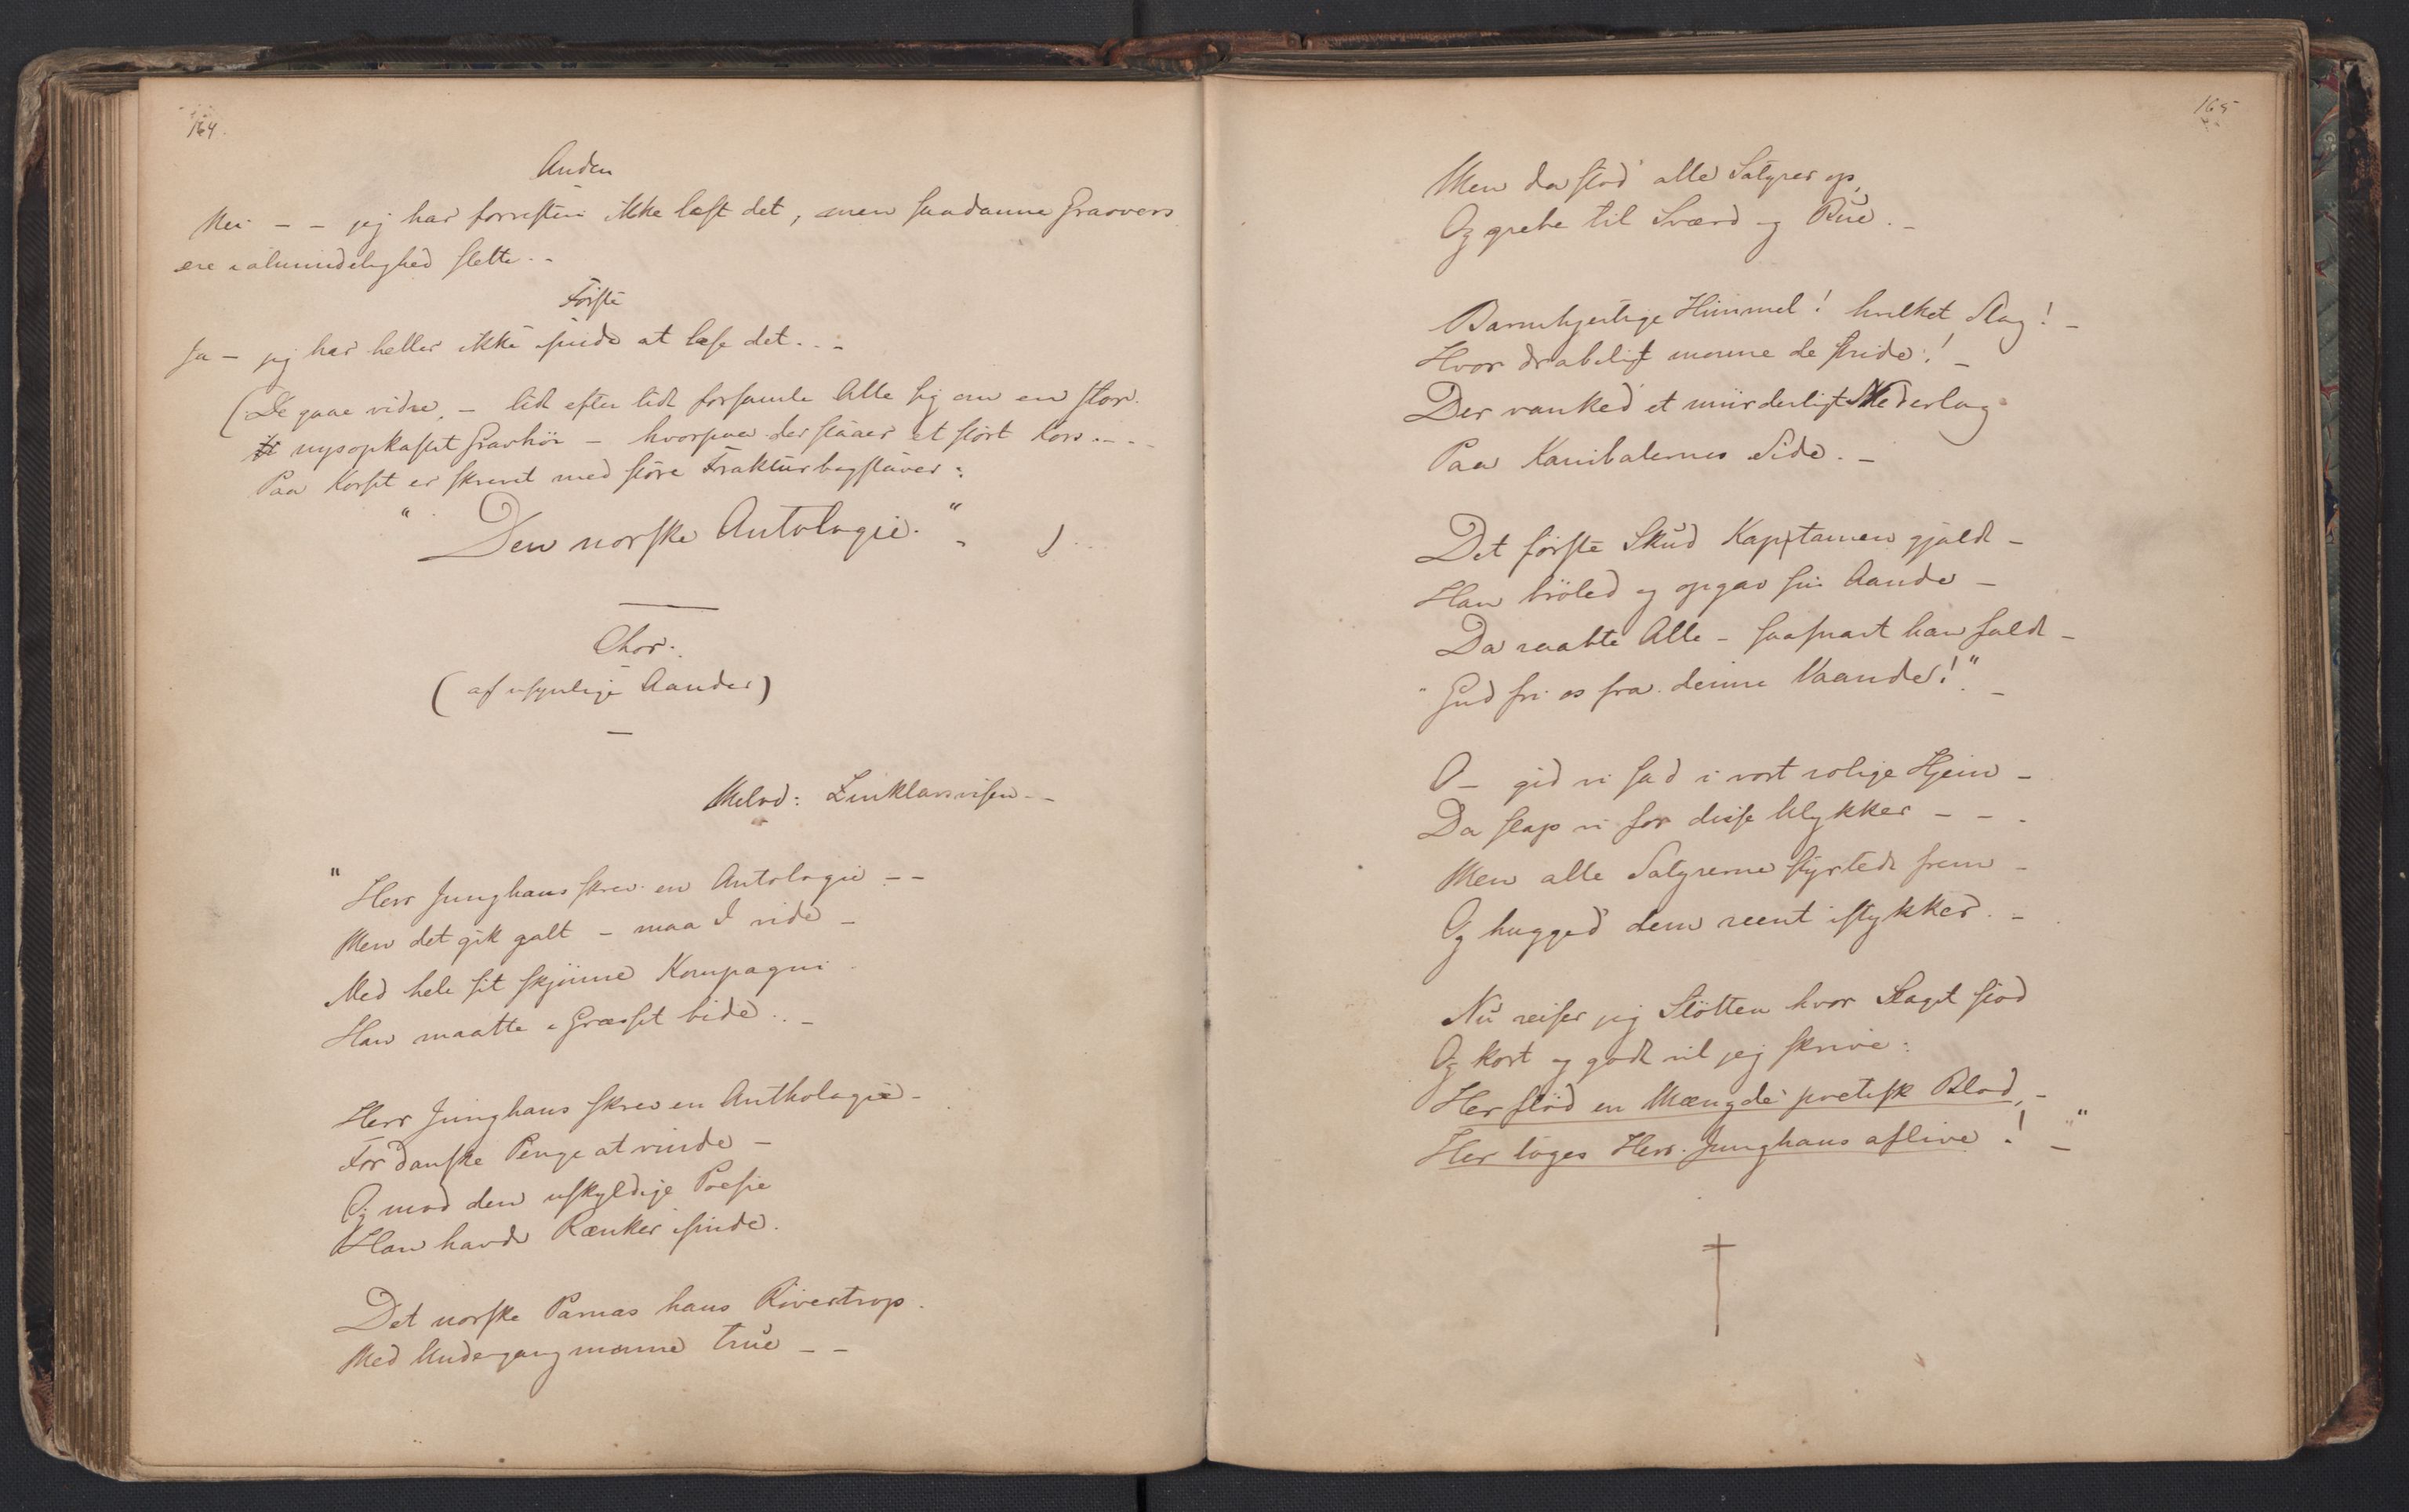 164.
Anden
Nei - - jeg har forresten ikke læst det, men saadanne Gravvers
ere i almindelighed slette. -
Første
Ja - jeg har heller ikke gidet at læse det. . -
(De gaae videre, - lidt efter lidt forsamle Alle sig om en stor
nysopkastet Gravhöi - hvorpaa der staaer et stort Kors . - -
Paa Korset er skrevet med store Frakturbogstaver:
"Den norske Antologie." - )
Chor.
(af usynlige Aander)
Melod: Zinklarsvisen. -
"Herr Junghans skrev en Antologie - -
Men det gik galt - maa I vide -
Med hele sit skjönne Kompagni
Han maatte i Græsset bide. . -
Herr Junghans skrev en Anthologie -
For danske Penge at vinde -
Og mod den uskyldige Poesie
Han havde Rænker isinde.
Det norske Parnas hans Röverstrop
Med Undergang monne true - -
165
Men da stod alle Satyrer op,
Og grebe til Sværd og Bue. -
Barmhjertige Himmel! hvilket Slag! -
Hvor drabeligt monne de stride! -
Der vanked et mürderligt Nederlag
Paa Kanibalernes Side. -
Det første Skud Kapitainen gjaldt -
Han bröled og opgav sin Aande -
Da raabte Alle - saasnart han faldt -
"Gud fri os fra denne Vaande!" -
O - gid vi sad i vort rolige Hjem -
Da slap vi for disse Ulykker - - -
Men alle Satyrerne styrtede frem -
Og hugged dem reent istykker. -
Nu reiser jeg Stötten hvor Slaget stod
Og kort og godt vil jeg skrive:
Her flöd en Mængde poetisk Blod, -
Her toges Herr. Junghans aflive! - "